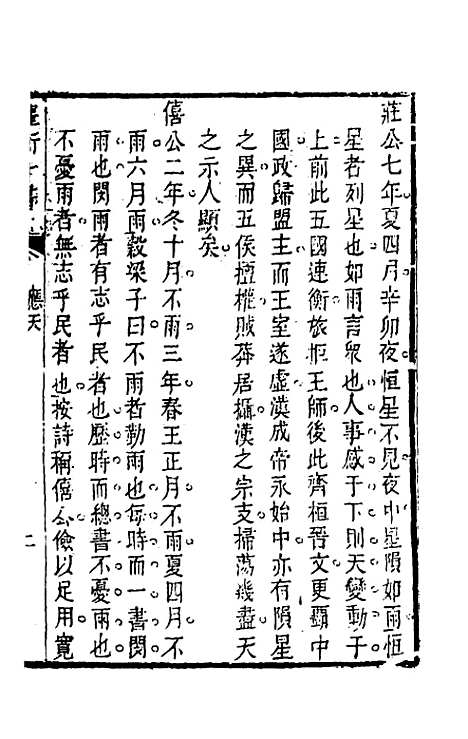 莊公七年夏四月辛卯夜恒星不見夜中星隕如雨恒
星者列星也如雨言眾也人事感于下則天變動于
上前此五國連衡旅拒王師後此齊桓晉文更覇中
國政歸盟主而王室遂虛漢成帝永始中亦有隕星
之異而五侯擅權賊莽居攝漢之宗支掃蕩幾盡天
之示人顯矣
僖公二年冬十月不雨三年春王正月不雨夏四月不
雨六月雨穀梁子曰不雨者勤雨也每時而一書閔
雨也閔雨者有志乎民者也歷時而總書不憂雨也
不憂雨者無志乎民者也按詩稱僖公儉以足用寬
應天
二